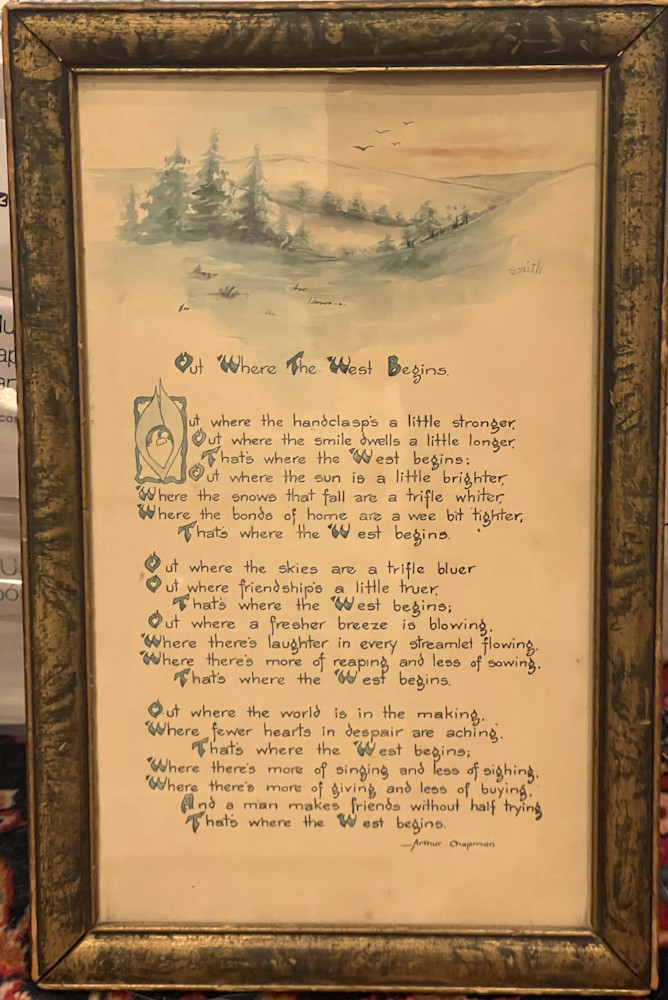 Smith
Out Where The West Begins.
Out where the handclasp's a little stronger,
Out where the smile dwells a little longer,
That's where the West begins;
Out where the sun is a little brighter,
Where the snows that fall are a trifle whiter,
Where the bonds of home are a wee bit tighter,
That's where the West begins.
Out where the skies are a trifle bluer
Out where friendship's a little truer,
That's where the West begins;
Out where a fresher breeze is blowing,
Where there's laughter in every streamlet flowing,
Where there's more of reaping and less of sowing,
That's where the West begins.
Out where the world is in the making,
Where fewer hearts in despair are aching,
That's where the West begins;
Where there's more of singing and less of sighing,
Where there's more of giving and less of buying,
And a man makes friends without half trying
That's where the West begins.
—Arthur Chapman